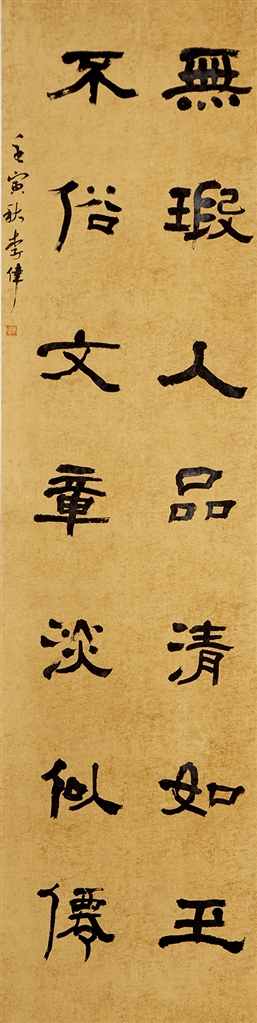 無瑕人品清如玉
不俗文章淡似僊
壬寅秋李偉